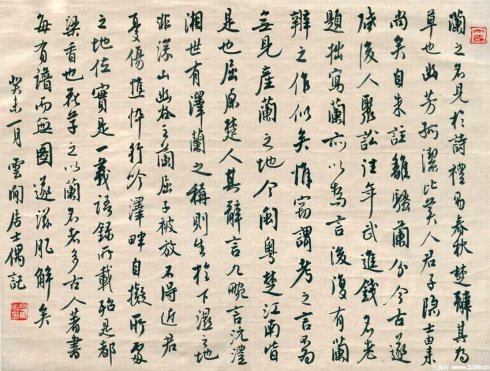 蘭之名見於詩禮易春秋楚辭其為
草也幽芳孤潔比美人君子隱士由来
尚矣自来註離騷蘭分今古遂
後人聚訟往年武進錢名老
題拙寫蘭亦以為言後復有蘭
辨之作似矣惟竊謂考之言不為
無見產蘭之地今閩粵楚江南皆
是也屈原楚人其辭言九畹言沅澧
湘世有澤蘭之稱則生於下濕之地
非深山幽谷之蘭屈子被放不得近君
憂傷憔悴行吟澤畔自擬所處
之地位實是一義語錄所載殆是都
梁香也花草之以蘭名者多古人著書
每有譜而無圖遂滋肌解矣
癸未一月雲閒居士偶記
www.zitie.cn